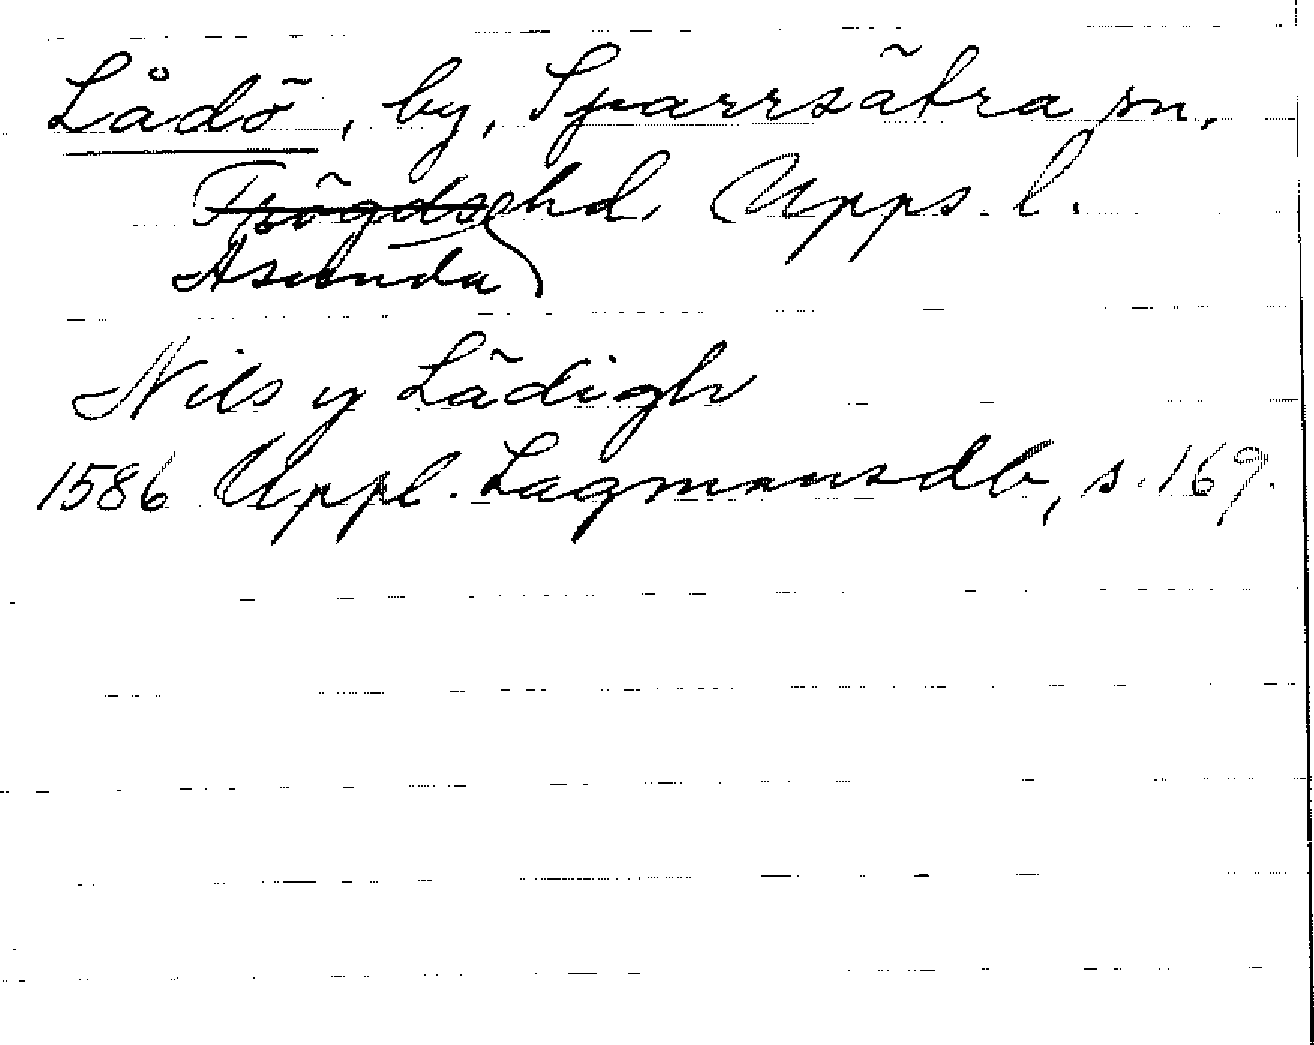 Lådö, by, Sparrsätra sn,
Trögds hd, Upps. l.
Asunda
Nils y Lädigh
1586 Uppl. Lagmansdb, s. 169.